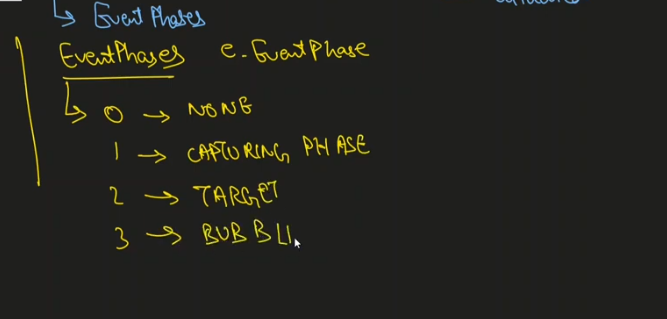 ↳ Event Phases
EventPhases e.EventPhase
↳ 0 → NONE
1 → CAPTURING PHASE
2 → TARGET
3 → BUBBLI